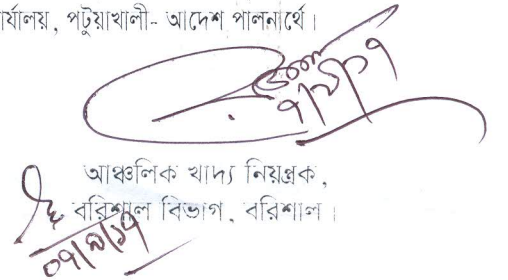 র্যালয়, পটুয়াখালী- আদেশ পালনার্থে।
আঞ্চলিক খাদ্য নিয়ন্ত্রক,
বরিশাল বিভাগ, বরিশাল।